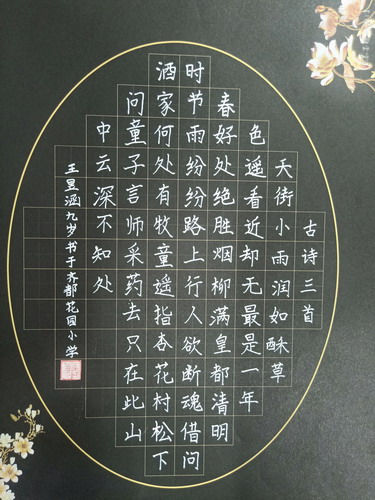 古诗三首
天街小雨润如酥草
色遥看近却无最是一年
春好处绝胜烟柳满皇都清明
时节雨纷纷路上行人欲断魂借问
酒家何处有牧童遥指杏花村松下
问童子言师采药去只在此山
中云深不知处
王昱涵九岁书于齐都花园小学